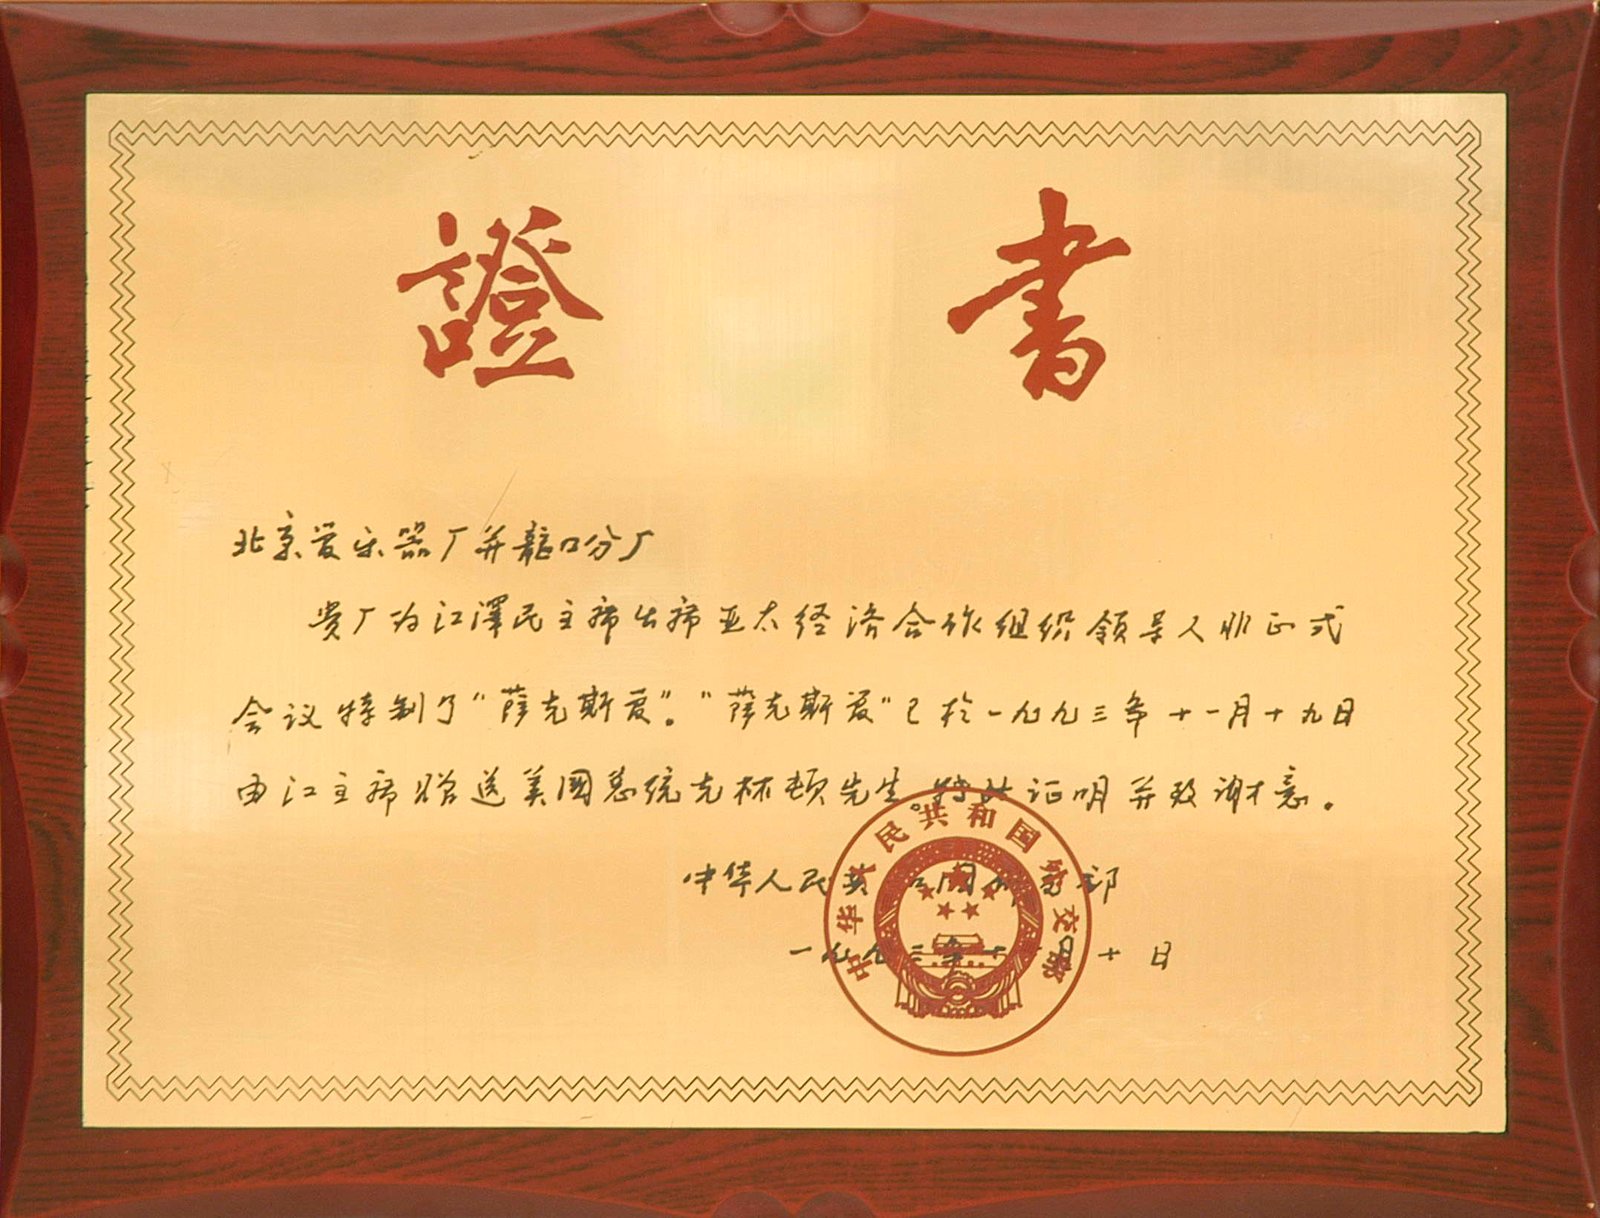 證書
北京管乐器厂并龍口分厂
贵厂为江澤民主席出席亚太经济合作组织领导人非正式
会议特制了“萨克斯管”。“萨克斯管”已於一九九三年十一月十九日
由江主席赠送美國总统克林顿先生。特此证明并致谢意。
中华人民共和國外交部
一九九三年十月十日
中华人民共和国外交部